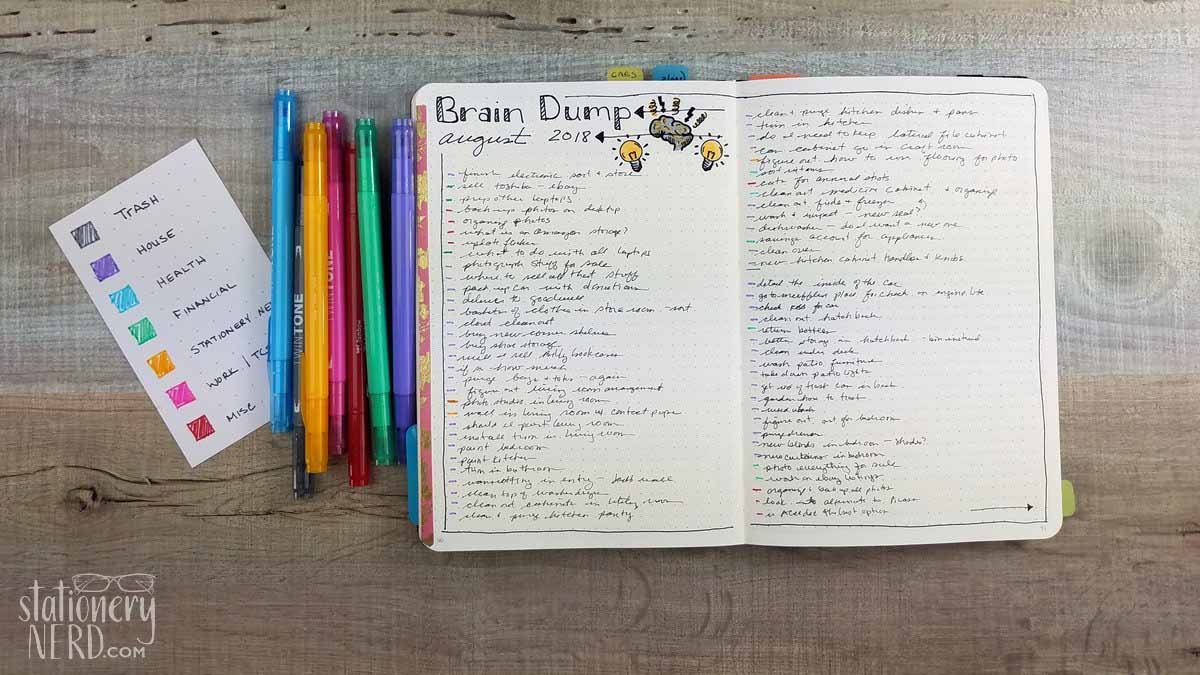 TRASH
HOUSE
HEALTH
FINANCIAL
STATIONERY.NE
WORK |
MISC
TWINTONE
CARS
Brain Dump
august 2018
finish electronic sort & store
sell toshiba - ebay
prep other laptops
back up photos on desktop
organize photos
what is on amazon storage?
what to do with all laptops
photograph stuff for sale
where to sell all that stuff
pack up car with donations
deliver to goodwill
baskets of clothes in store room - sort
closet clean out
buy new corner shelves
buy shoe storage
will I sell Billy bookcases
if so how much
purge bags & totes - again
figure out living room arrangement
photo studio in living room
wall in living room w/ contact paper
should I paint living room
install trim in living room
paint bedroom
paint kitchen
trim in bathroom
wainscotting in entry - back wall
clean top of washer dryer
clean out cabinets in utility room
clean & purge kitchen pantry
clean & purge kitchen dishes & pans
trim in kitchen
do I need to keep lateral file cabinet
can cabinet go in craft room
figure out how to use flooring for photo
cats for annual shots
clean out medicine cabinet & organize
clean out fridge & freezer
wash & inspect - new seal?
dishwasher - do I want a new one
savings account for appliances
clean oven
new kitchen cabinet handles & knobs
detail the inside of the car
check for car
clean out hatchback
return bottles
better storage in hatchback - bin instead
clean under deck
wash patio furniture
take down patio lights
get rid of trash can in back
garden how to treat
figure out art for bedroom
purge dresser
new blinds in bedroom - shades?
new curtains in bedroom
photo everything for sale
work on ebay listings
organize & back up all photos
look into alternate to Picasa
is ACDSee the best option
stationery
NERD.COM